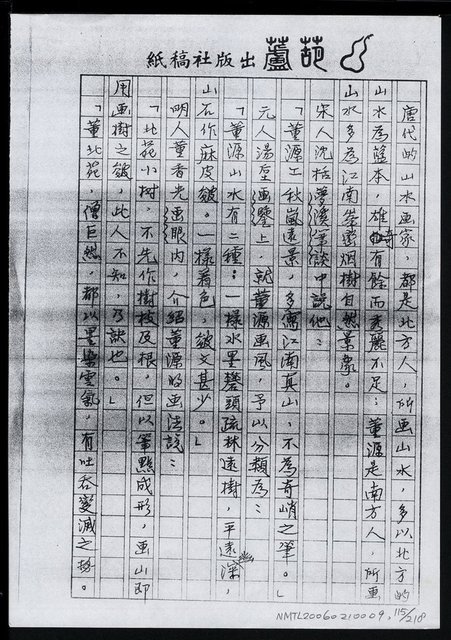 紙稿社版出蘆葫
唐代的山水画家，都是北方人，所画山水，多以北方的
山水為藍本，雄奇有餘而秀麗不足；董源是南方人，所画
山水多為江南崇巒烟樹自然景象。
宋人沈括夢溪筆談中說他：
「董源工秋嵐遠景，多寫江南真山，不為奇峭之筆。」
元人湯垕画鑒上，就董源画風，予以分類為：
「董源山水有二種：一樣水墨礬頭疏林遠樹，平遠幽深，
山石作麻皮皴。一樣着色，皴文甚少。」
明人董香光画眼內，介紹董源的画法說：
「北苑小树，不先作樹枝及根，但以筆點成形，画山即
用画樹之皴，此人不知，乃訣也。」
「董北苑，僧巨然，都以墨染雲氣，有吐吞變滅之勢。
NMTL20060210009, 115/218